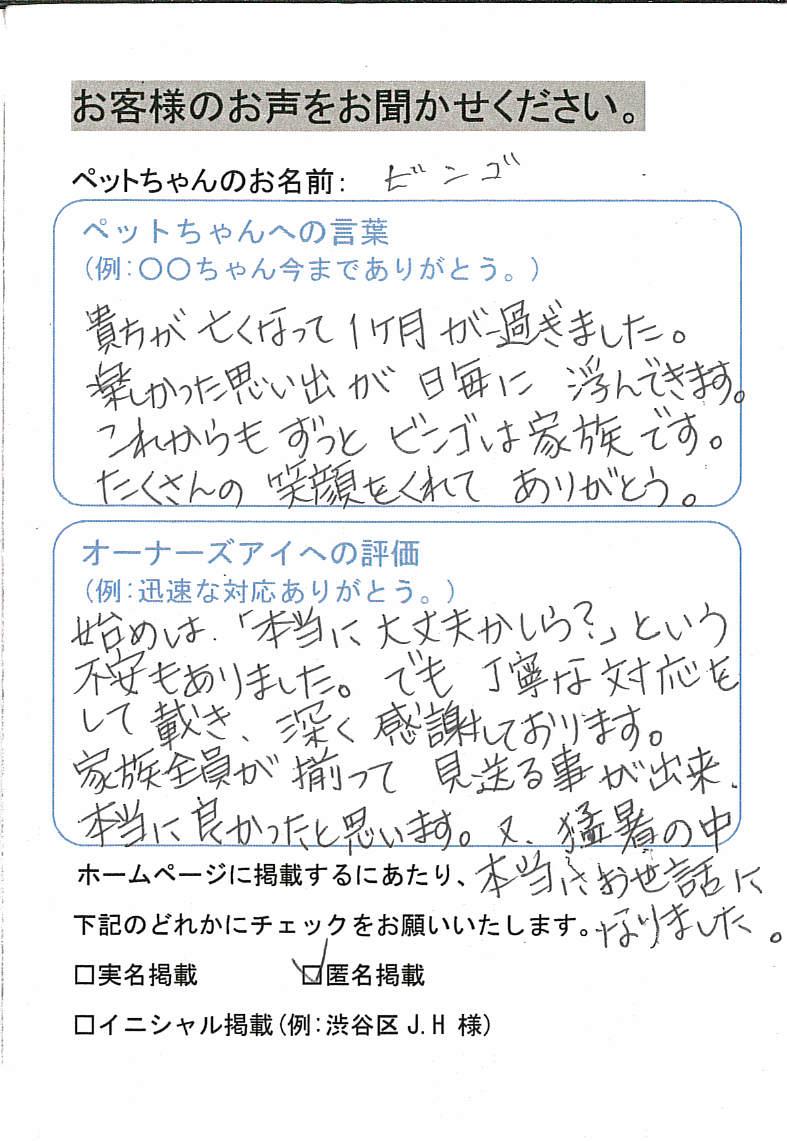 お客様のお声をお聞かせください。
ペットちゃんのお名前: ビンゴ
ペットちゃんへの言葉
(例:〇〇ちゃん今までありがとう。)
貴方が亡くなって1ケ月が過ぎました。
楽しかった思い出が日毎に浮んできます。
これからもずっとビンゴは家族です。
たくさんの笑顔をくれてありがとう。
オーナーズアイへの評価
(例:迅速な対応ありがとう。)
始めは、「本当に大丈夫かしら?」という
不安もありました。でも丁寧な対応を
して戴き、深く感謝しております。
家族全員が揃って見送る事が出来、
本当に良かったと思います。又、猛暑の中
本当にお世話に
なりました。
ホームページに掲載するにあたり、
下記のどれかにチェックをお願いいたします。
□実名掲載 ☑匿名掲載
□イニシャル掲載(例:渋谷区 J.H 様)